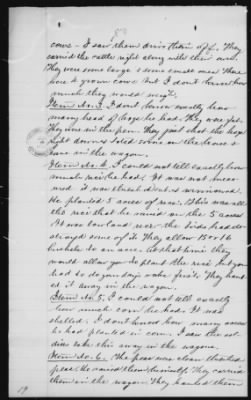 cows - I saw them drive them off. They
carried the cattle right along with their own.
They were some large & some small ones. There
were 4 grown cows but I don't know how
much they would weigh.
Item No. 3. I don't know exactly how
many head of hogs he had. They were fat.
They were in the pen. They just shot the hogs
right down &
in the wagon.
Item No. 4. I could not tell exactly how
much rice he had. It was not measured
it was thrashed out & winnowed.
He planted 5 acres of rice. This was all
the rice that he raised in the 5 acres
It was low land rice. the birds had destroyed
some of it. They allow 15 or 16
bushels to an acre. At that time they
would allow you to plant the rice but you
had to do your days work first. They hauled
it away in the wagon.
Item No. 5. I could not tell exactly
how much corn he had. It was
shelled. I don't know how many acres
he had planted in corn. I saw the soldiers
take this away in the wagons.
Item No. 6. The peas was clean thrashed
peas. He raised them himself. They carried
them in the wagon. They hauled them
19